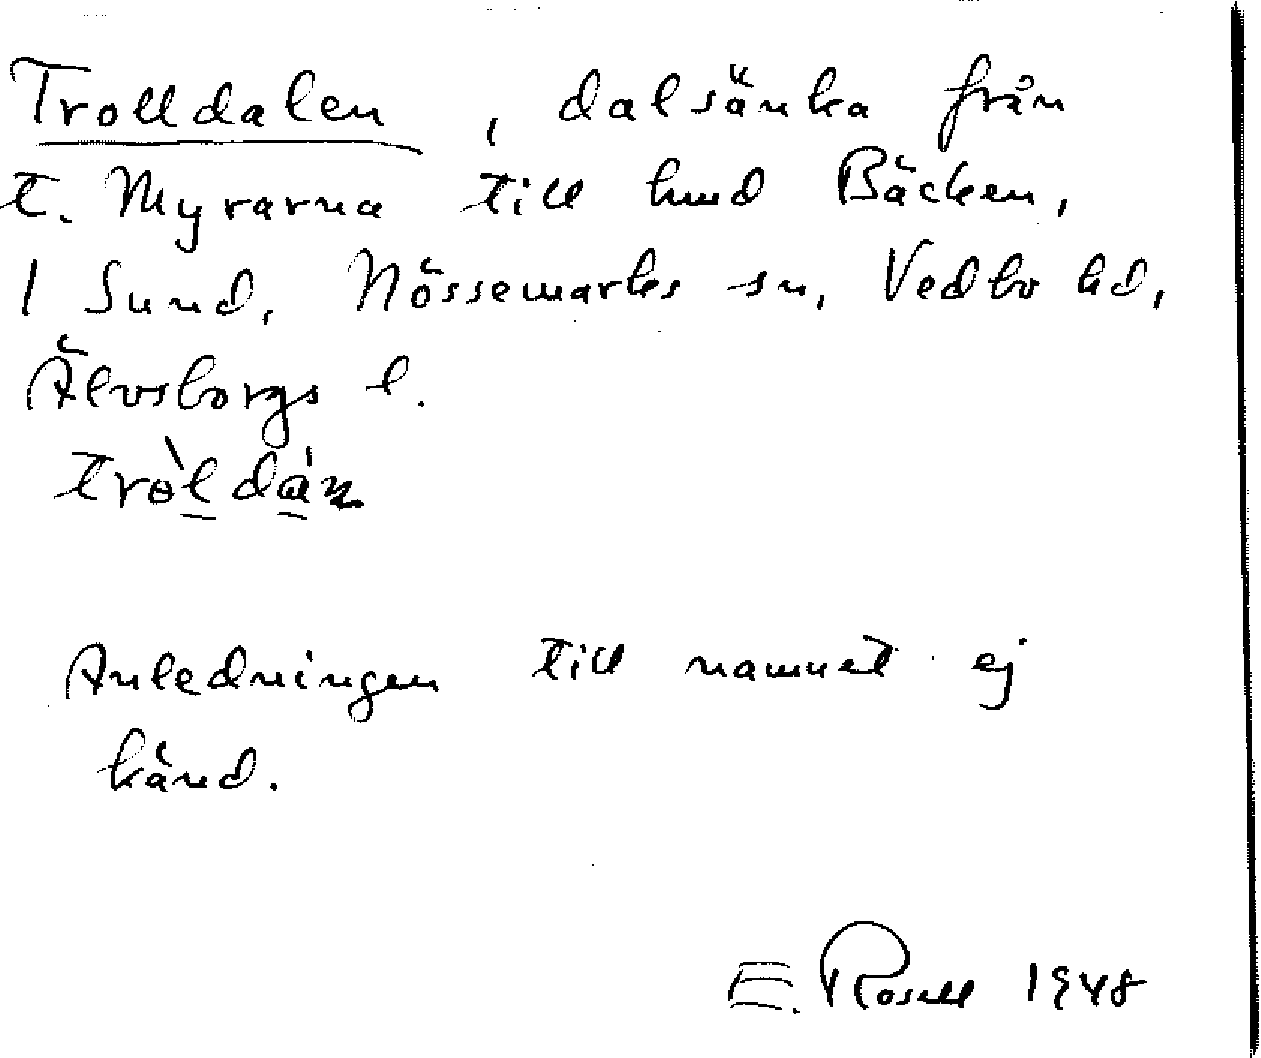 Trolldalen, dalsänka från
t. Myrarna till hmd Bäcken,
1 Sund, Nössemarks sn, Vedbo hd,
Älvsborgs l.
tròldán
Anledningen till namnet ej
känd.
E. Rosell 1948